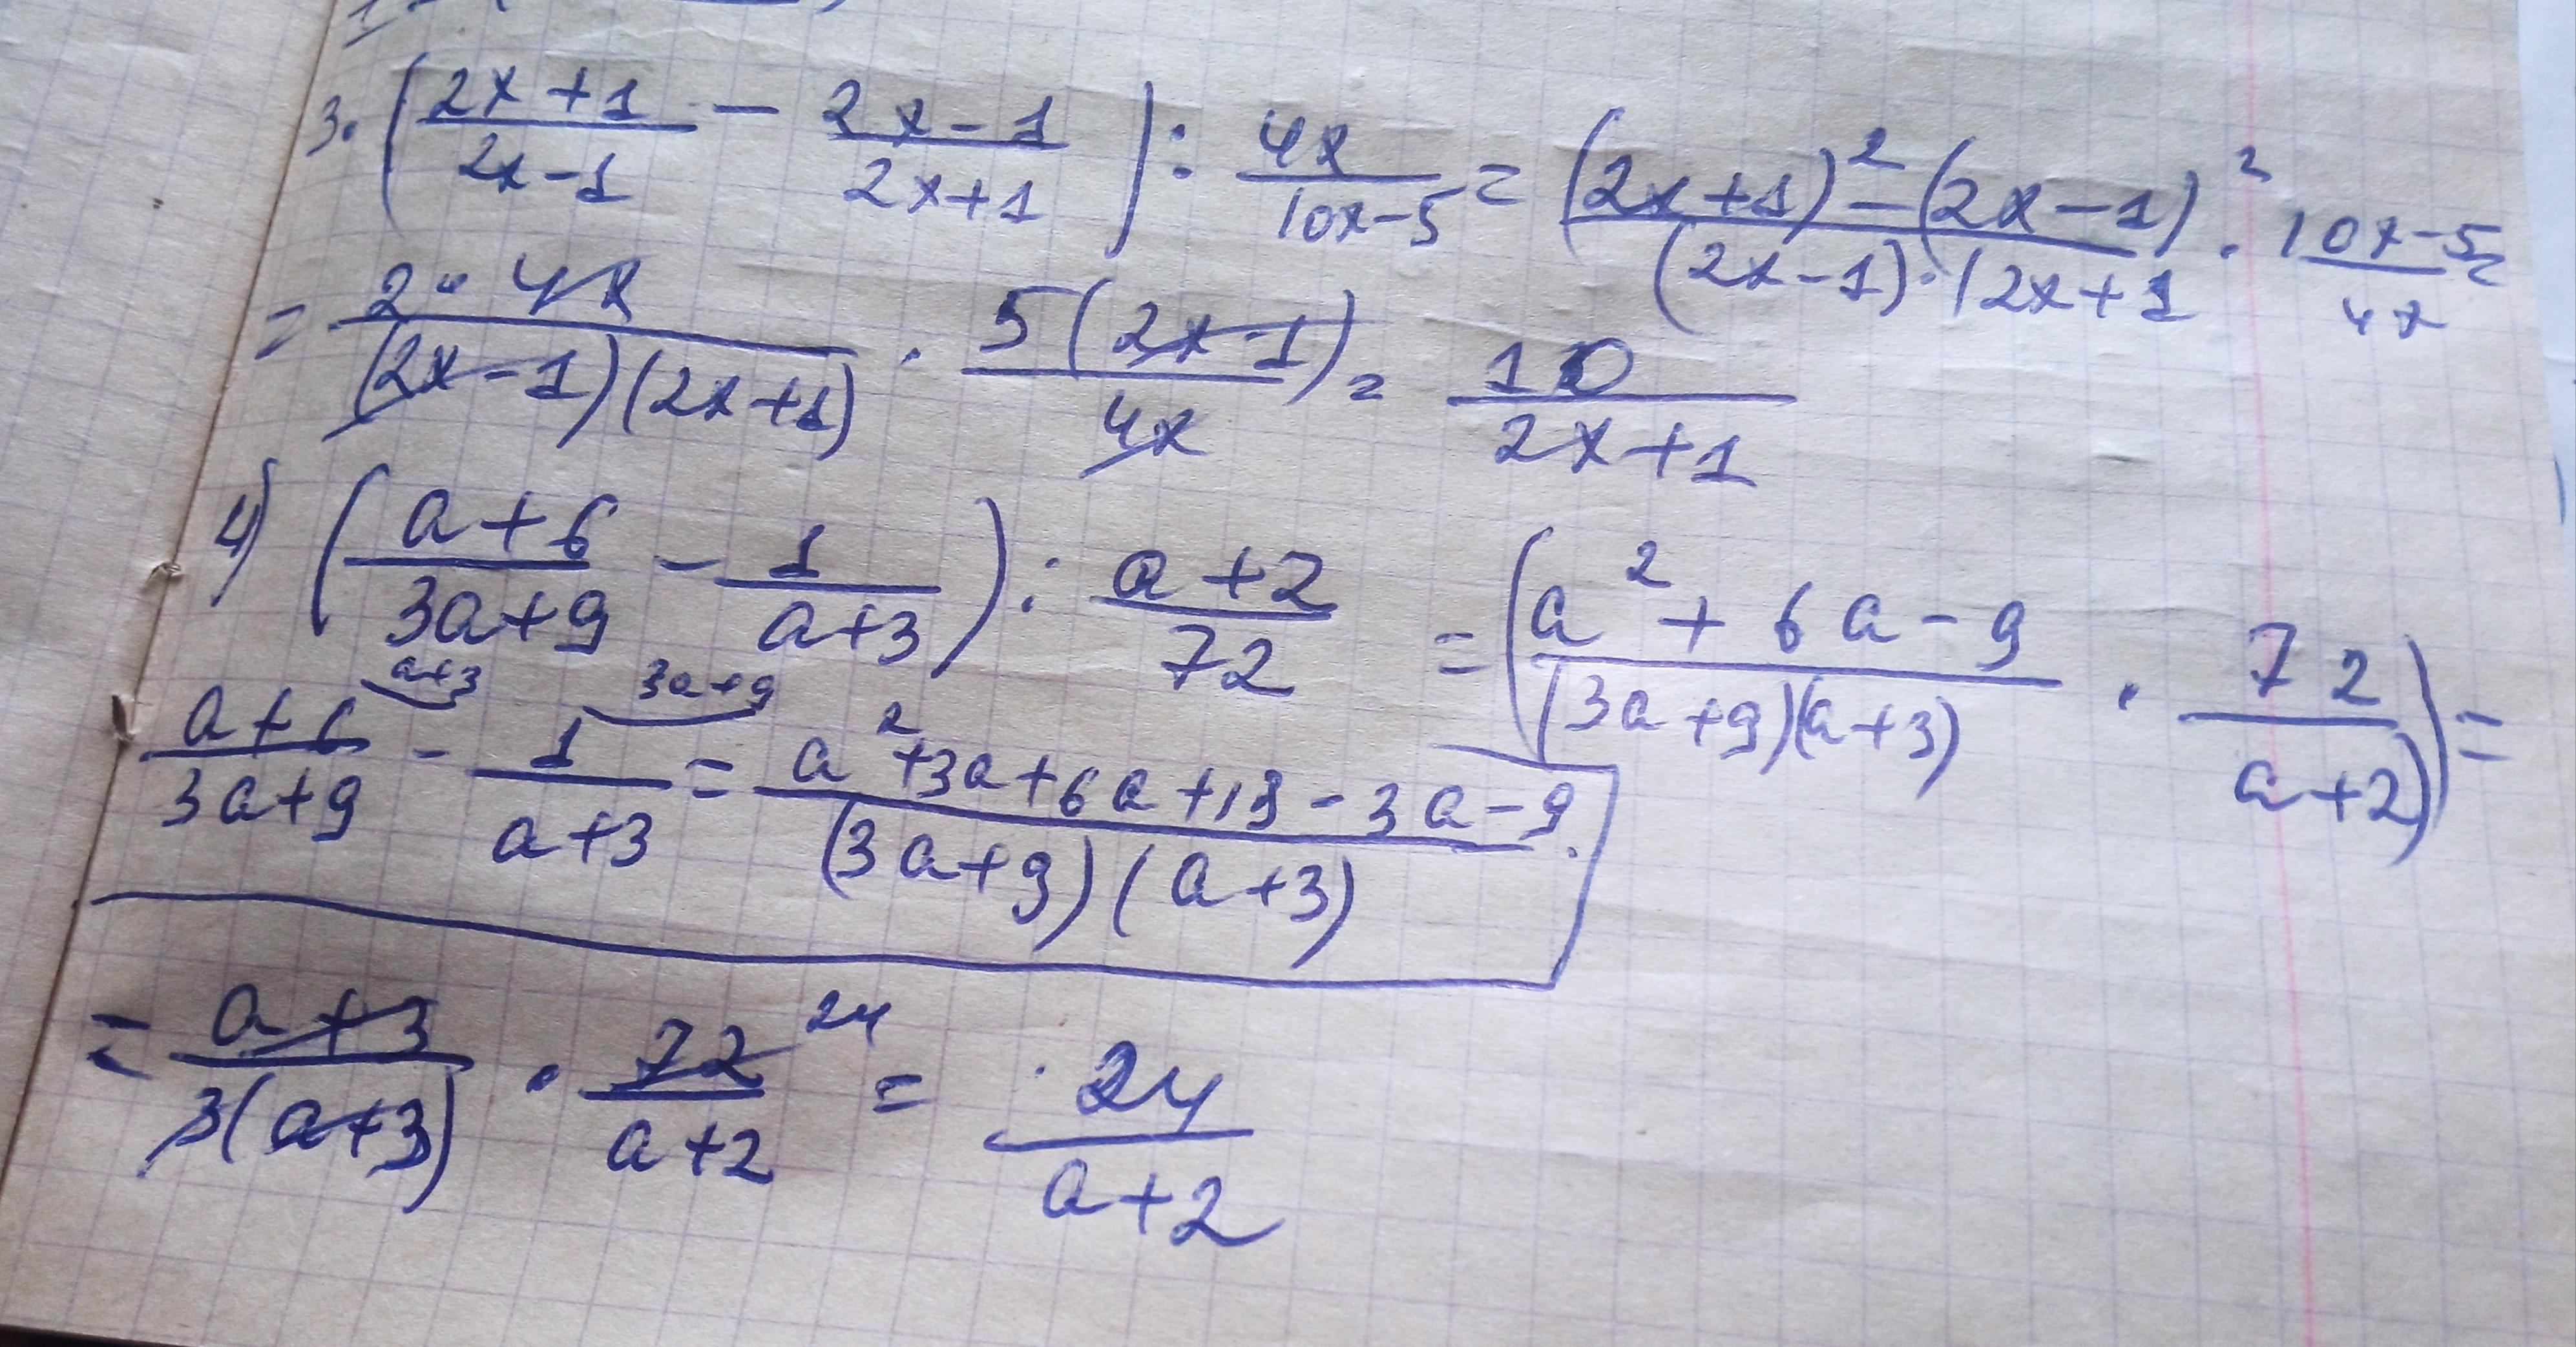 3. ( (2x+1)/(2x-1) - (2x-1)/(2x+1) ) : 4x/(10x-5) = ((2x+1)² - (2x-1)²)/((2x-1)·(2x+1) · (10x-5)/4x =
= (2·4x)/((2x-1)(2x+1)) · 5(2x-1)/4x = 10/(2x+1)
4) ( (a+6)/(3a+9) - 1/(a+3) ) : (a+2)/72 = ( (a²+6a-9)/((3a+9)(a+3)) · 72/(a+2) ) =
a+3 3a+9
(a+6)/(3a+9) - 1/(a+3) = (a²+3a+6a+18-3a-9)/((3a+9)(a+3))
= (a+3)/(3(a+3)) · 72/(a+2) 24 = 24/(a+2)